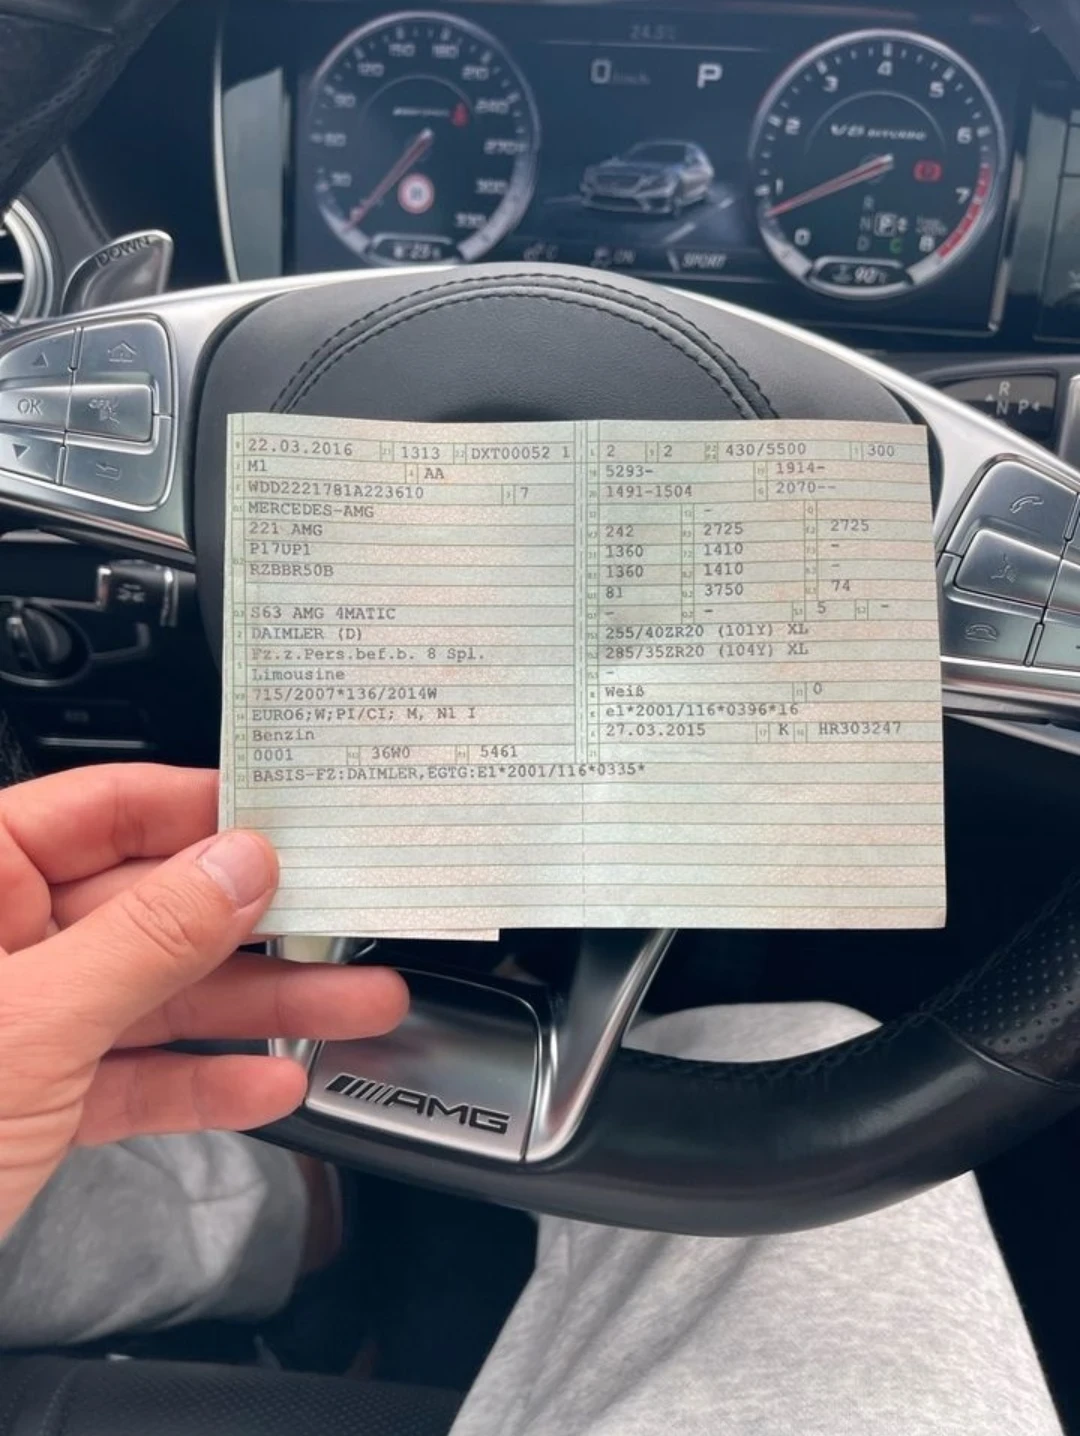 150 180
120 210
90 240
60 270
30 300
330
24.5°C
0 km/h P
3 4 5
2 6
1 7
0 8
V8 BITURBO
R
N P E
D C
ON
SPORT
90°C
DOWN
OK
OFF
R
N P
22.03.2016 1313 DXT00052 1
M1 AA
WDD2221781A223610 7
MERCEDES-AMG
221 AMG
P17UP1
RZBBR50B
S63 AMG 4MATIC
DAIMLER (D)
Fz.z.Pers.bef.b. 8 Spl.
Limousine
715/2007*136/2014W
EURO6;W;PI/CI; M, N1 I
Benzin
0001 36W0 5461
BASIS-FZ:DAIMLER,EGTG:E1*2001/116*0335*
2 2 430/5500 300
5293- 1914-
1491-1504 2070--
-
242 2725 2725
1360 1410 -
1360 1410 -
81 3750 74
- - 5 -
255/40ZR20 (101Y) XL
285/35ZR20 (104Y) XL
-
Weiß 0
e1*2001/116*0396*16
27.03.2015 K HR303247
AMG